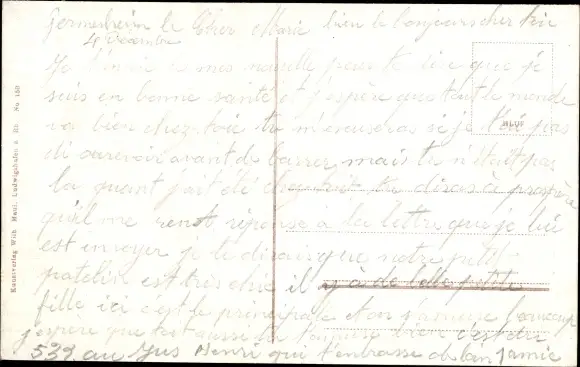 Germersheim le Cher Marie bien le bonjour cher
4 Décembre
Je t'envoie mes nouvelle pour te dire que je
suis en bonne santé et j'espère que tout le monde
va bien chez toi tu m'excuseras si je t'ai pas
di aurevoir avant de barrer mais tu n'était pas
la quant j'ait été tu diras à
qu'il me rent réponse à la lettre que je lui
est envoyer je te dirais que notre petit
patelin est très chic il y à de belle petite
fille ici c'est le principale et on s'amuse beaucoup
j'espère que c'est aussi
539 au Henri qui t'embrasse
BLUE
Kunstverlag Wilh. Ludwigshafen a. Rh. No 150